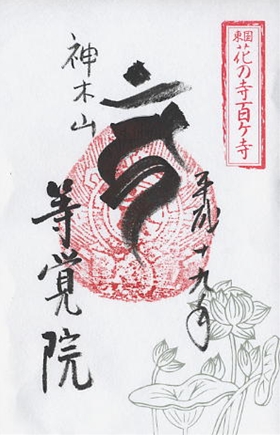 東国
花の寺百ヶ寺
平成十九年
神木山
等覚院